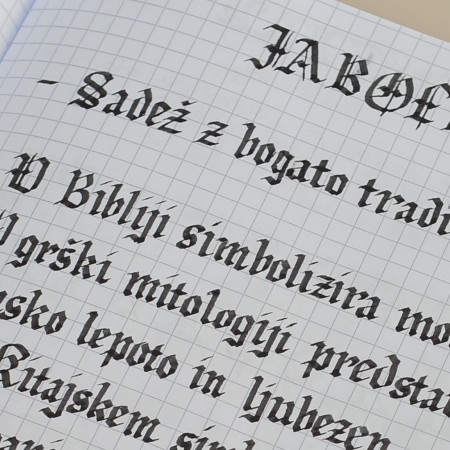 JABOL
- Sadež z bogato tradi
V Bibliji simbolizira mo
V grški mitologiji predsta
sko lepoto in ljubezen
Kitajskem sim